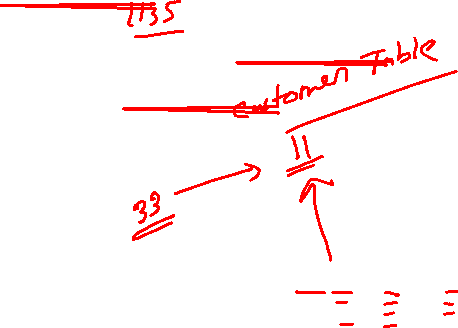 1135
Customer Table
11
33